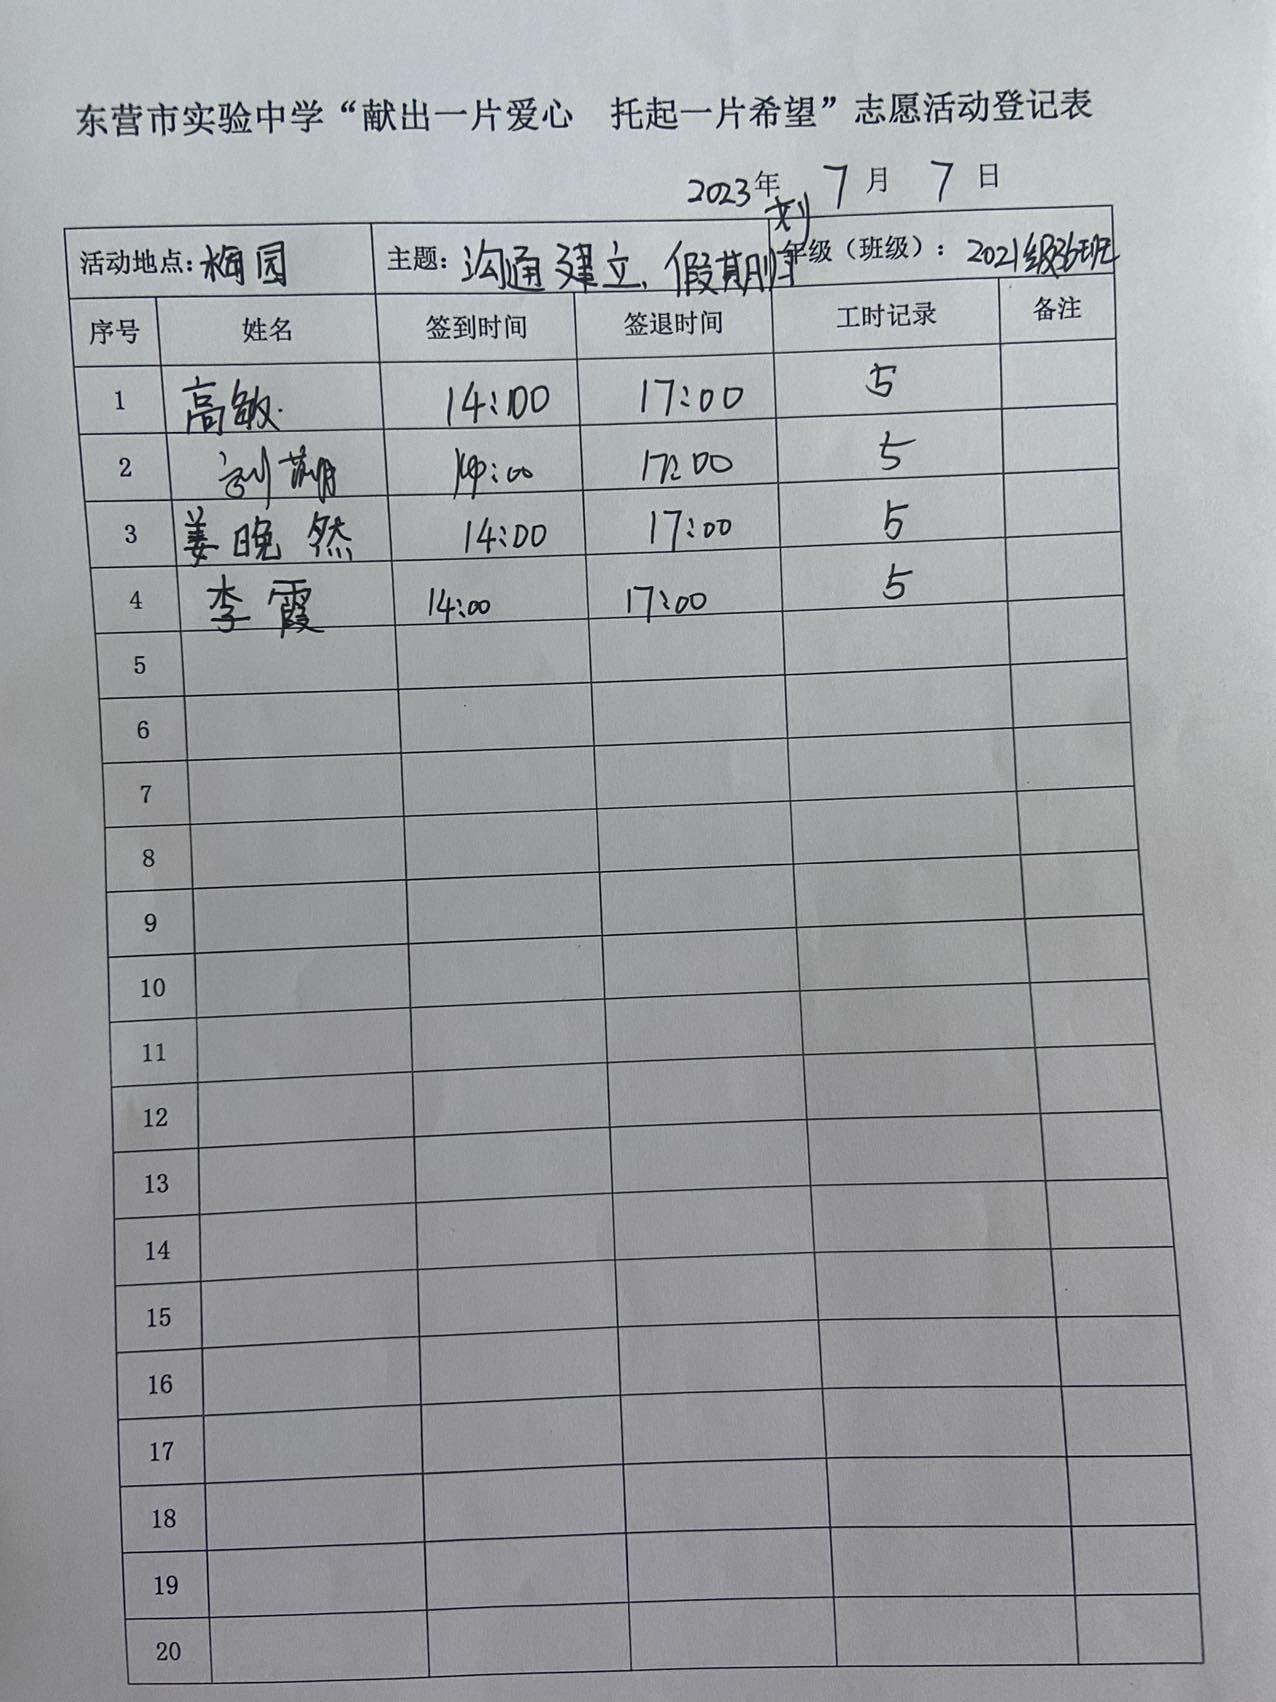 东营市实验中学“献出一片爱心 托起一片希望”志愿活动登记表
2023年 7月 7日
活动地点:梅园 主题: 沟通建立、假期 年级（班级）: 2021级 班
序号 姓名 签到时间 签退时间 工时记录 备注
1 高敏 14:00 17:00 5
2 刘 14:00 17:00 5
3 姜晚然 14:00 17:00 5
4 李霞 14:00 17:00 5
5
6
7
8
9
10
11
12
13
14
15
16
17
18
19
20